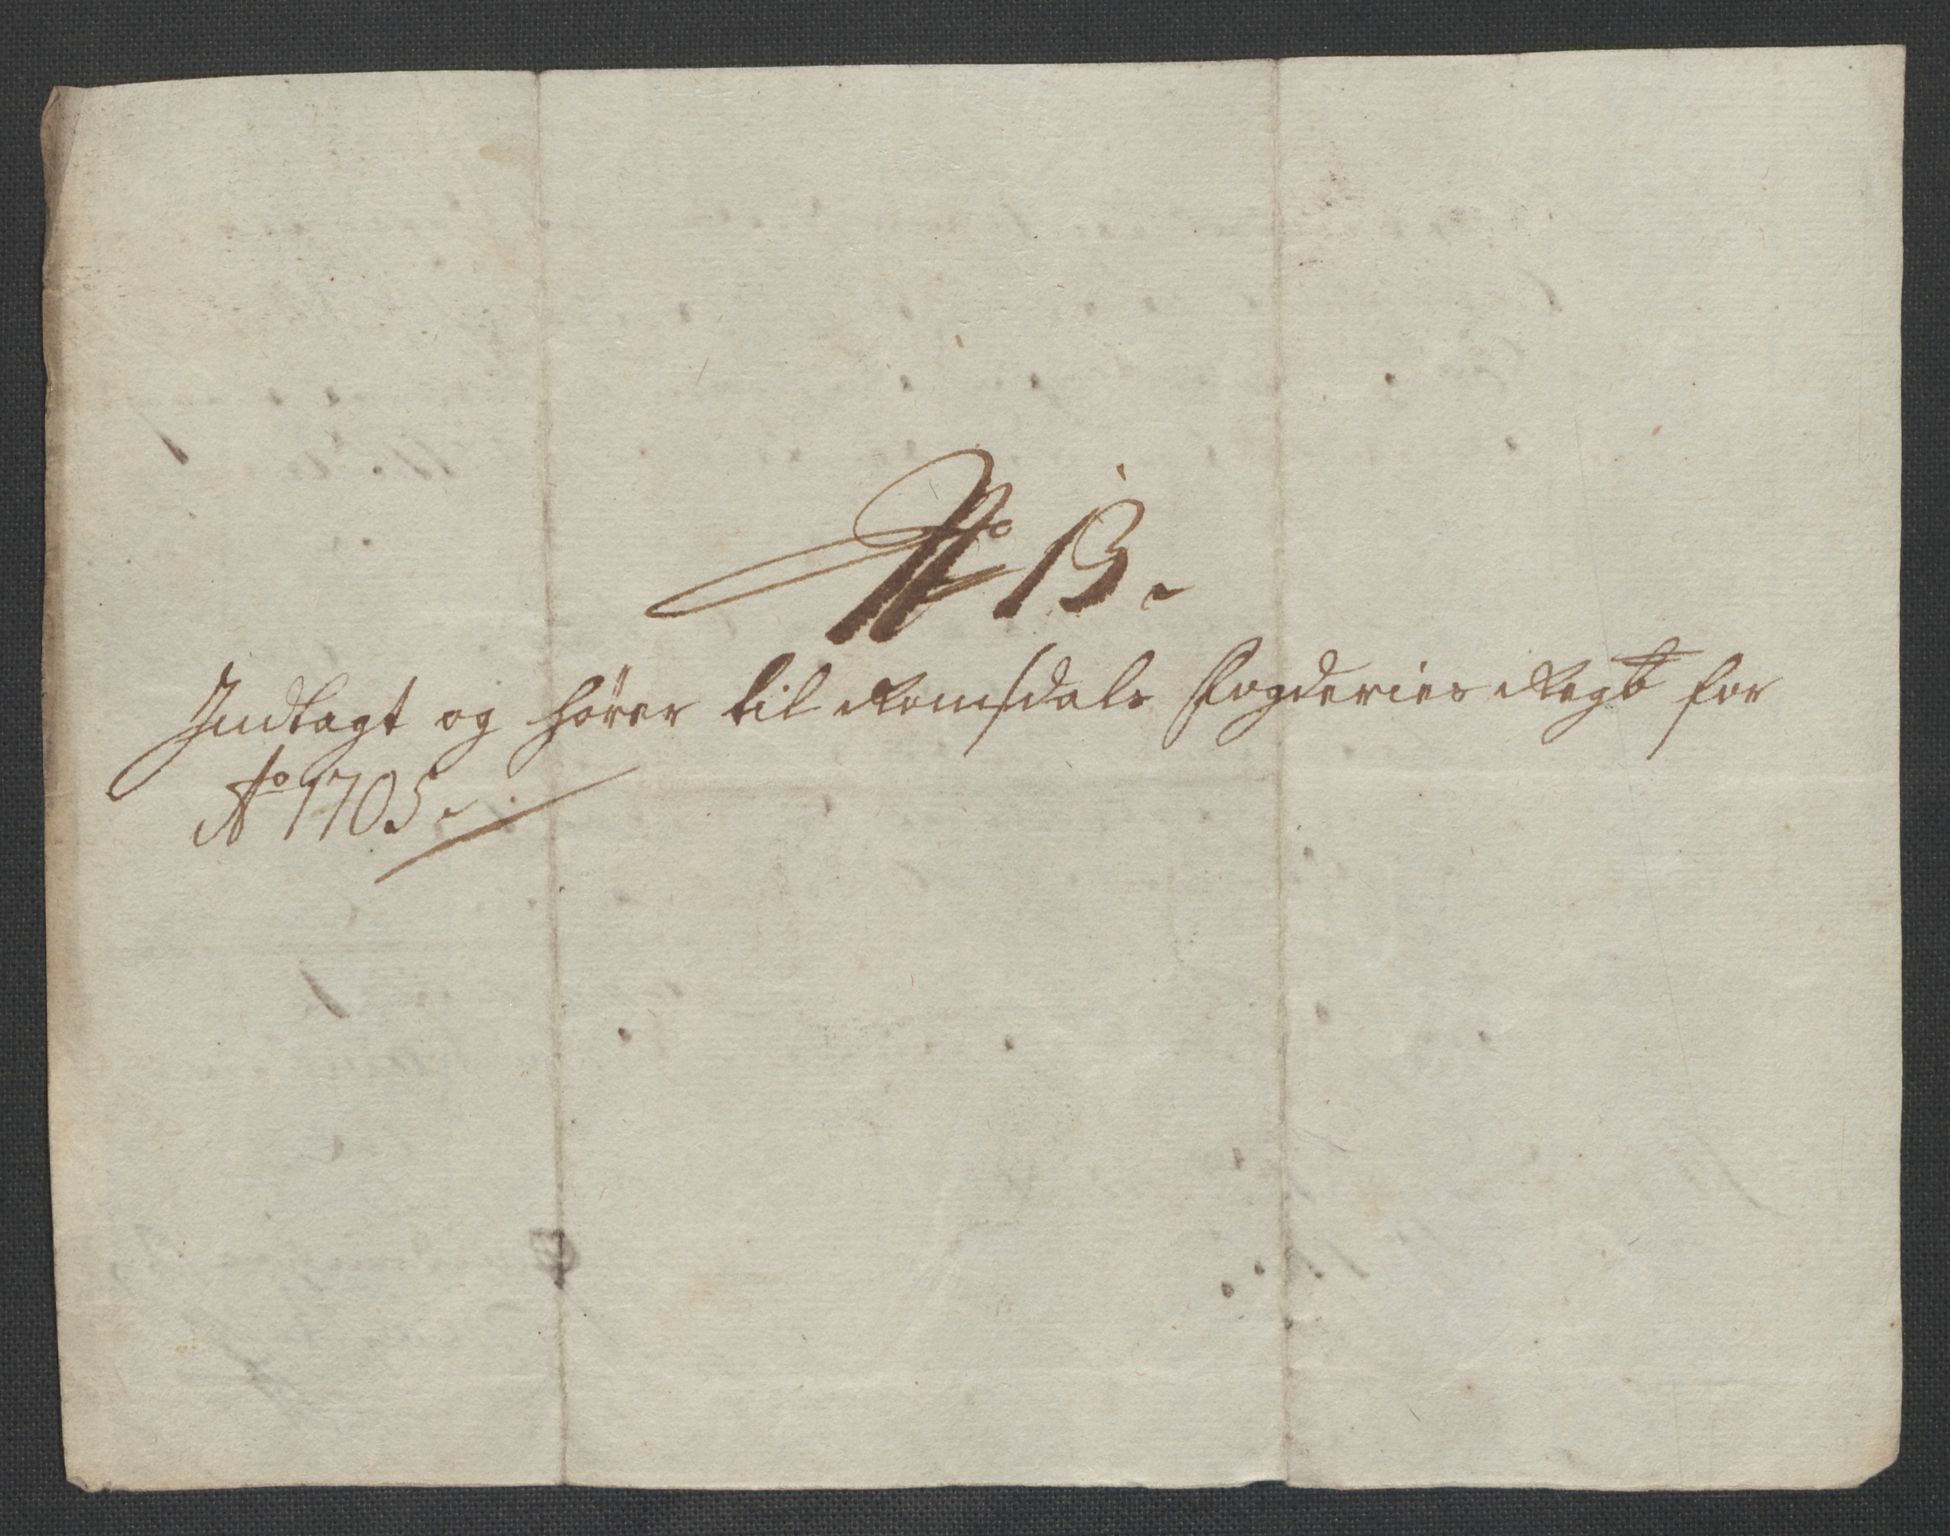 No 13.
Indlagt og hører til Romsdals Fogderies Regb for
Ao 1705.